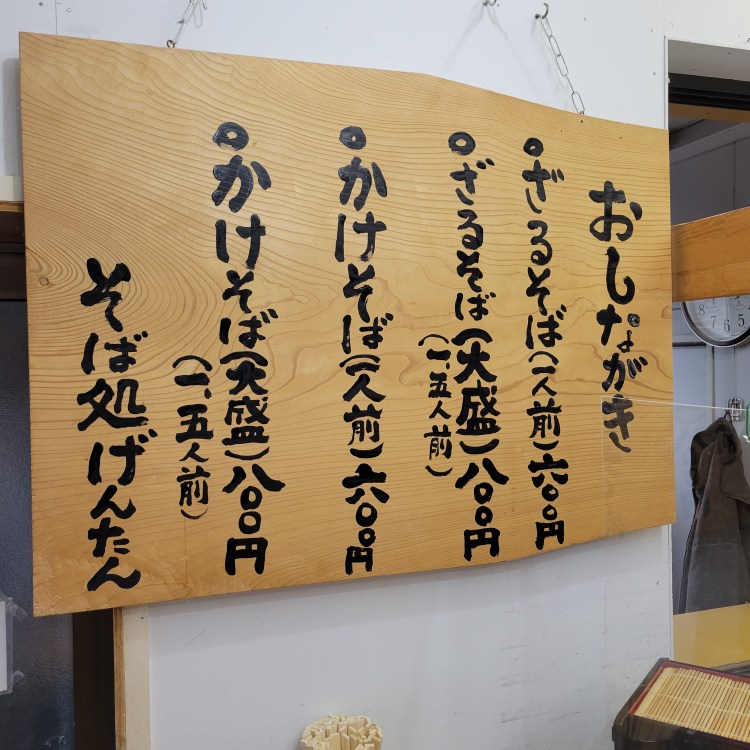 おしながき
○ざるそば(一人前)六〇〇円
○ざるそば(大盛)八〇〇円
(一、五人前)
○かけそば(一人前)六〇〇円
○かけそば(大盛)八〇〇円
(一、五人前)
そば処げんたん